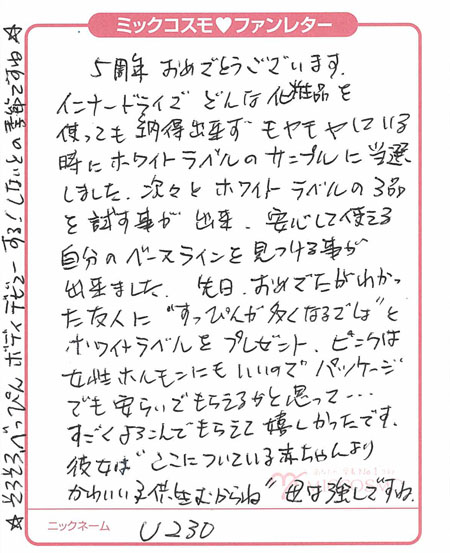 ミックコスモ♥ファンレター
5周年 おめでとうございます.
インナードライで どんな化粧品を
使っても 納得出来ず モヤモヤしている
時に ホワイトラベルのサンプルに当選
しました. 次々と ホワイトラベルの3品
を 試す事が 出来、安心して使える
自分の ベースラインを 見つける事が
出来ました. 先日、おめでたがわかっ
た友人に "すっぴんが多くなるでしょ" と
ホワイトラベルを プレゼント、ピンクは
女性ホルモンにも いいので パッケージ
でも 安らいでもらえるかと思って…
すごく よろこんでもらえて 嬉しかったです.
彼女は "ここについている赤ちゃんより
かわいい子供生むからね" 母は強しですね.
ニックネーム U230
☆そろそろ、べっぴん ボディ デビュー するしないとの季節ですね☆